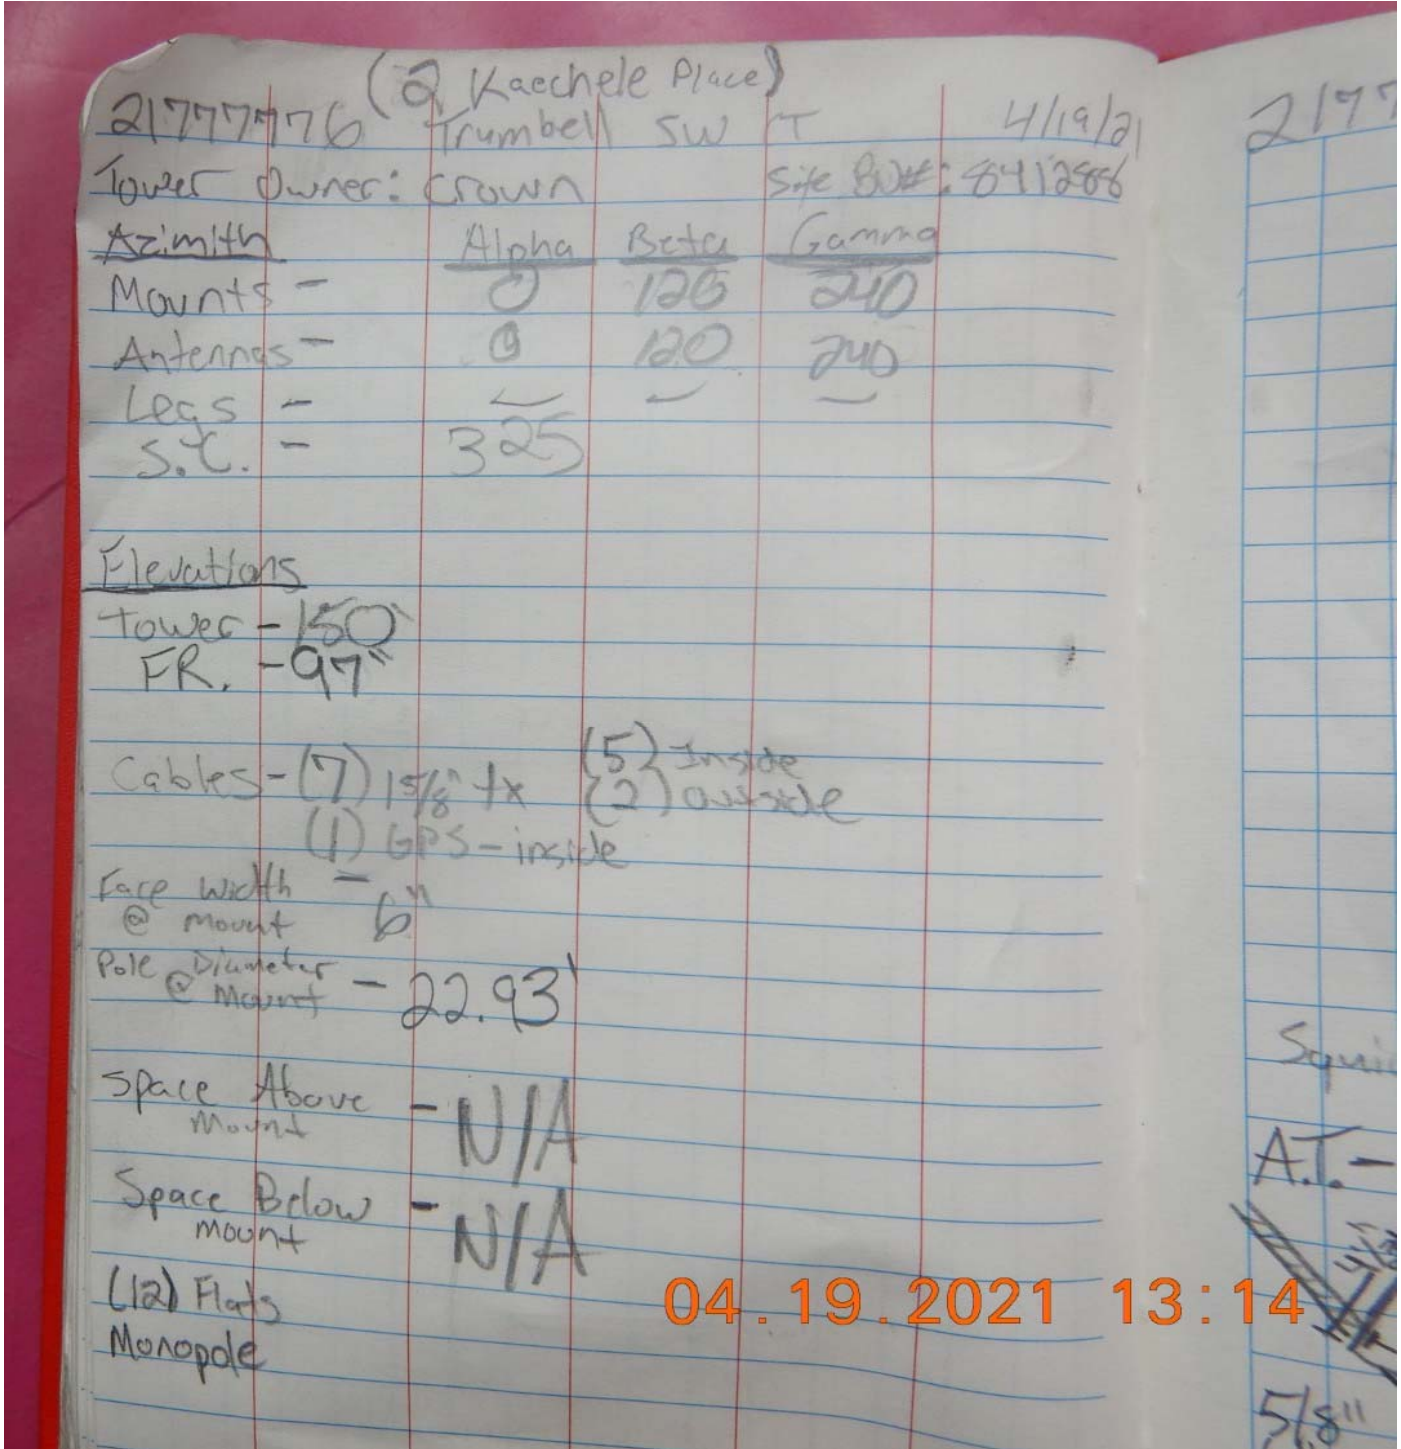 (2 Kaechele Place)
21777776 Trumbell SW CT 4/19/21
Tower Owner: Crown Site BU#: 8412886
Azimith Alpha Beta Gamma
Mounts - 0 120 240
Antennas - 0 120 240
Legs - — — —
S.C. - 325
Elevations
Tower - 150'
FR. - 97"
Cables - (7) 1 5/8" tx (5) Inside
(2) Outside
(1) GPS - inside
Face Width - 6"
@ mount
Pole Diameter - 22.93'
@ Mount
Space Above - N/A
Mount
Space Below - N/A
mount
(12) Flats
Monopole
04.19.2021 13:14
2177
A.T. -
5/8"